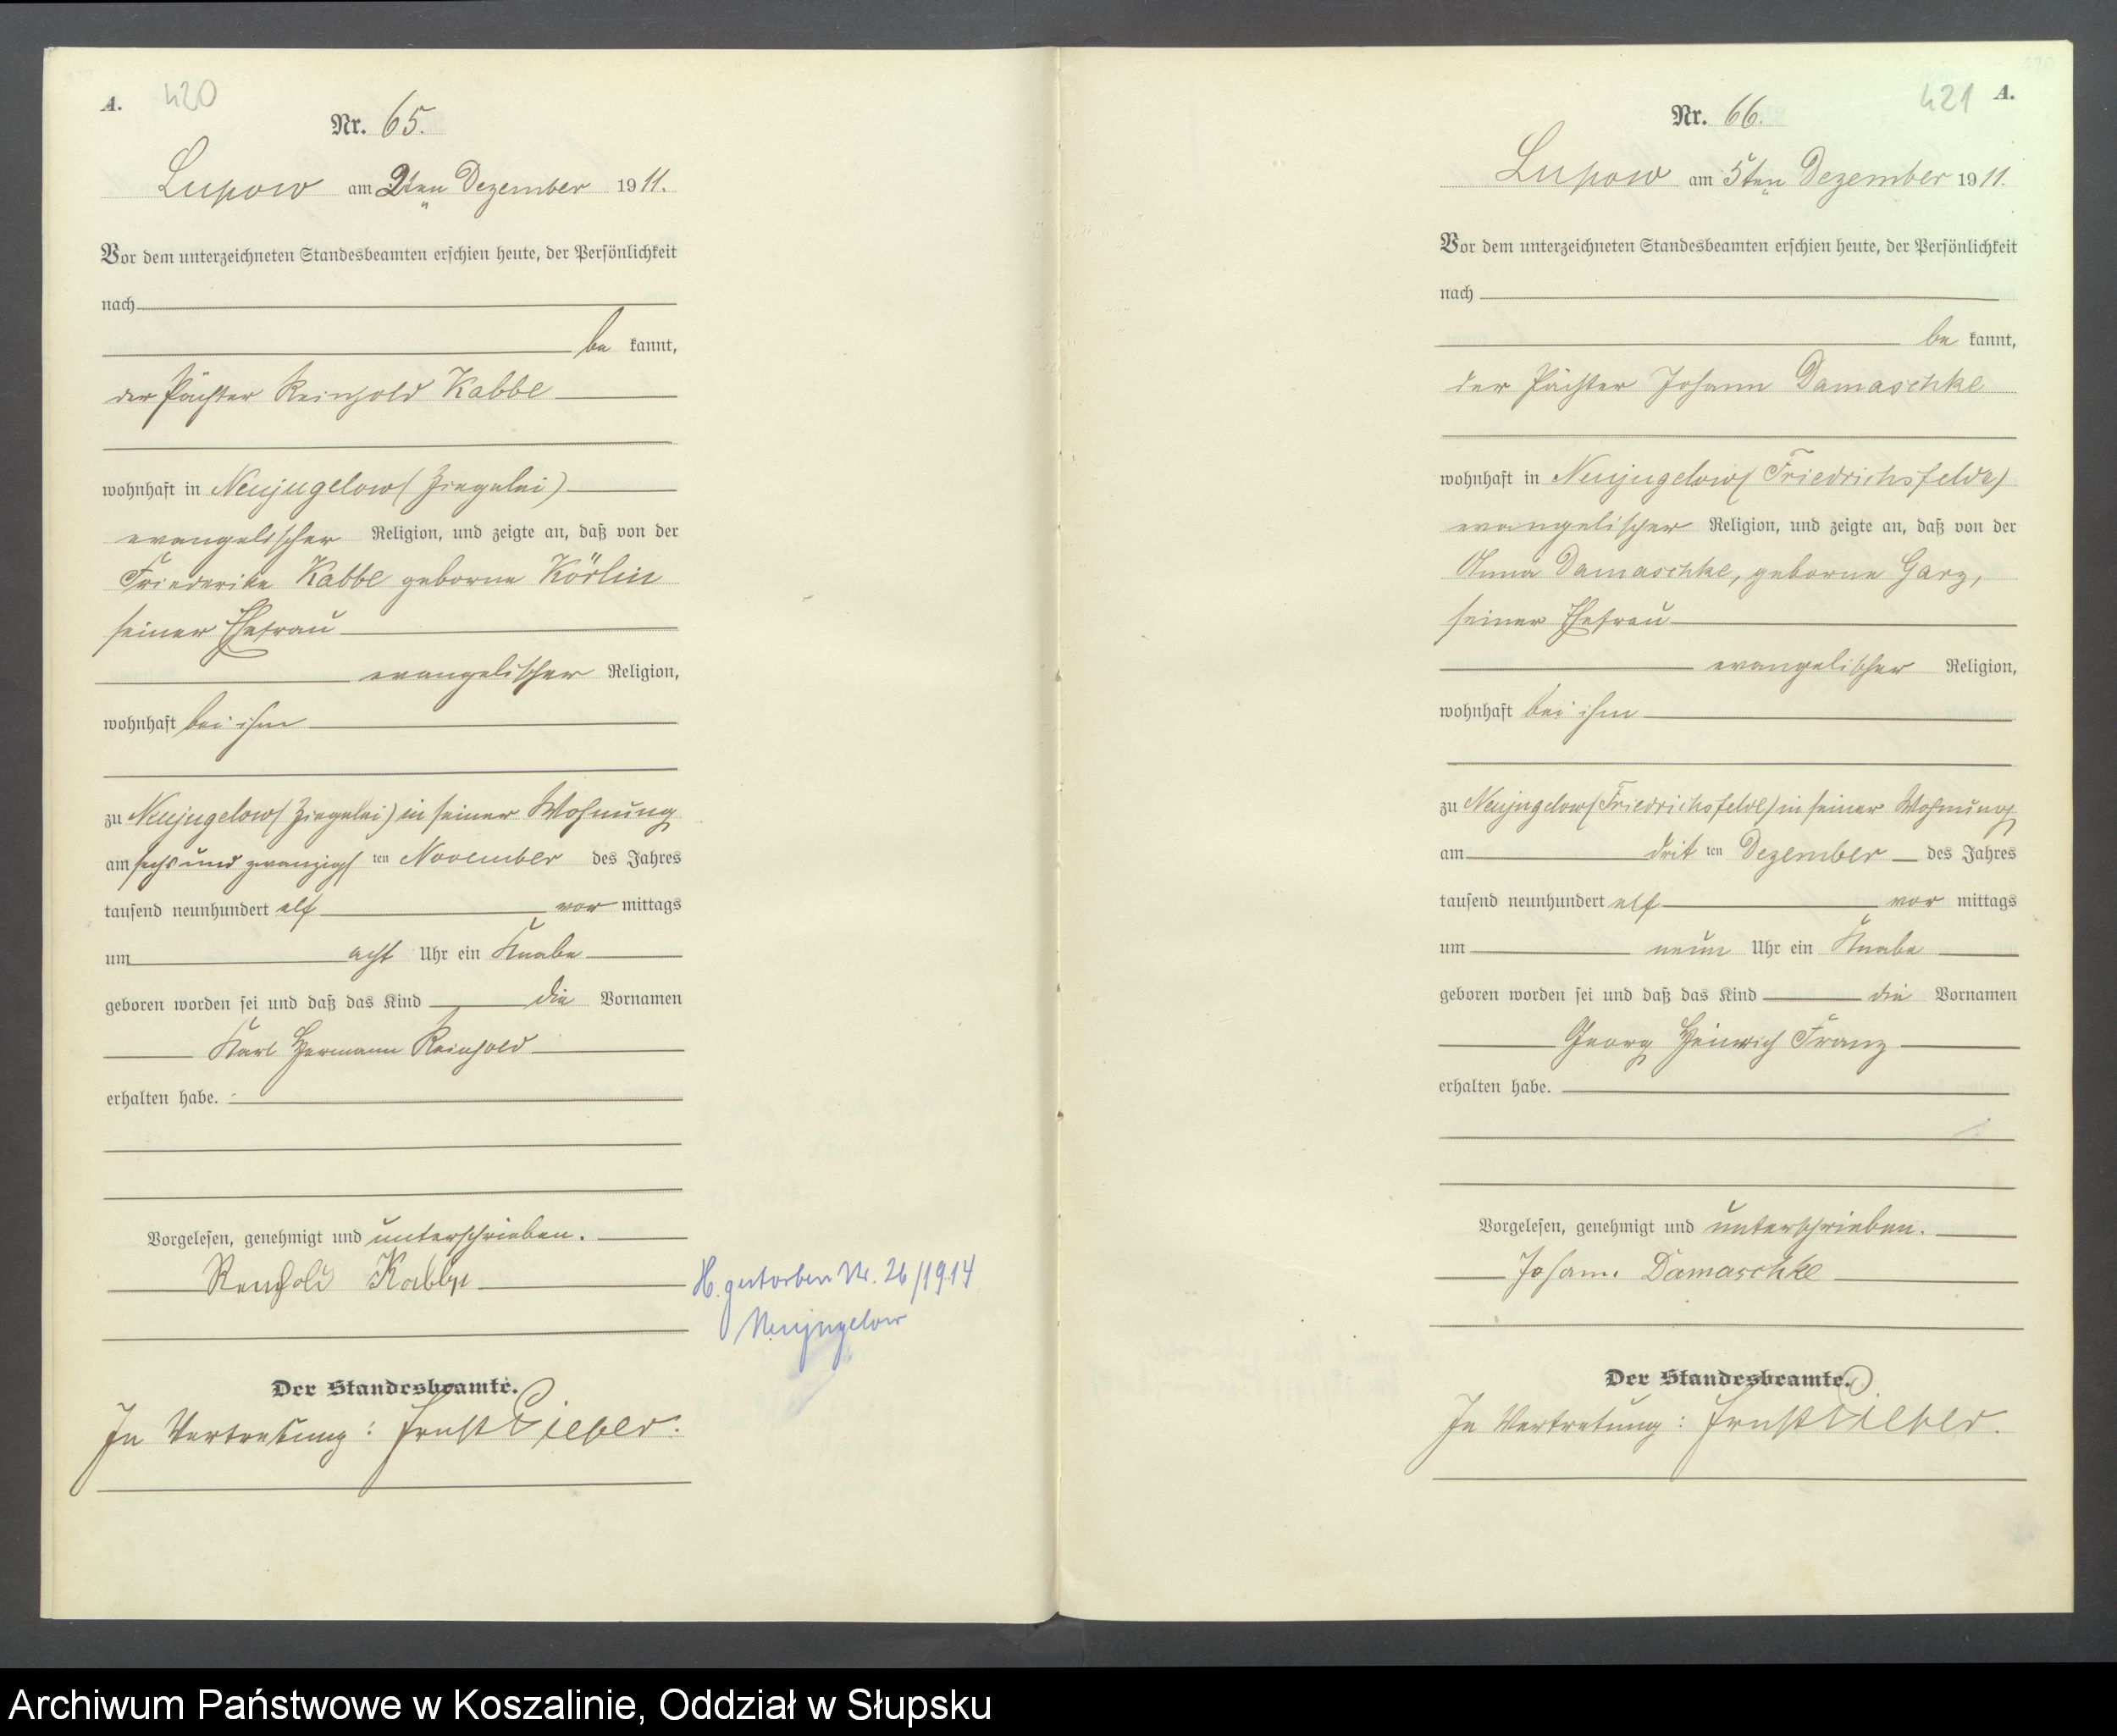 A. 420
Nr. 65.
Lupow am 2ten Dezember 1911.
Vor dem unterzeichneten Standesbeamten erschien heute, der Persönlichkeit
nach
be kannt,
der Pächter Reinhold Kabbe
wohnhaft in Neujugelow (Ziegelei)
evangelischer Religion, und zeigte an, daß von der
Friederike Kabbe geborne Körlin
seiner Ehefrau
evangelischer Religion,
wohnhaft bei ihm
zu Neujugelow (Ziegelei) in seiner Wohnung
am sechs und zwanzigs ten November des Jahres
tausend neunhundert elf vor mittags
um acht Uhr ein Knabe
geboren worden sei und daß das Kind die Vornamen
Karl Hermann Reinhold
erhalten habe.
Vorgelesen, genehmigt und unterschrieben.
Reinhold Kabbe
H. gestorben Nr. 26/1914
Neujugelow
Der Standesbeamte.
In Vertretung: Ernst
421 A.
Nr. 66.
Lupow am 5ten Dezember 1911.
Vor dem unterzeichneten Standesbeamten erschien heute, der Persönlichkeit
nach
be kannt,
der Pächter Johann Damaschke
wohnhaft in Neujugelow (Friedrichsfelde)
evangelischer Religion, und zeigte an, daß von der
Anna Damaschke, geborne Garz,
seiner Ehefrau
evangelischer Religion,
wohnhaft bei ihm
zu Neujugelow (Friedrichsfelde) in seiner Wohnung
am drit ten Dezember des Jahres
tausend neunhundert elf vor mittags
um neun Uhr ein Knabe
geboren worden sei und daß das Kind die Vornamen
Georg Heinrich Franz
erhalten habe.
Vorgelesen, genehmigt und unterschrieben.
Johann Damaschke
Der Standesbeamte.
In Vertretung: Ernst
Archiwum Państwowe w Koszalinie, Oddział w Słupsku